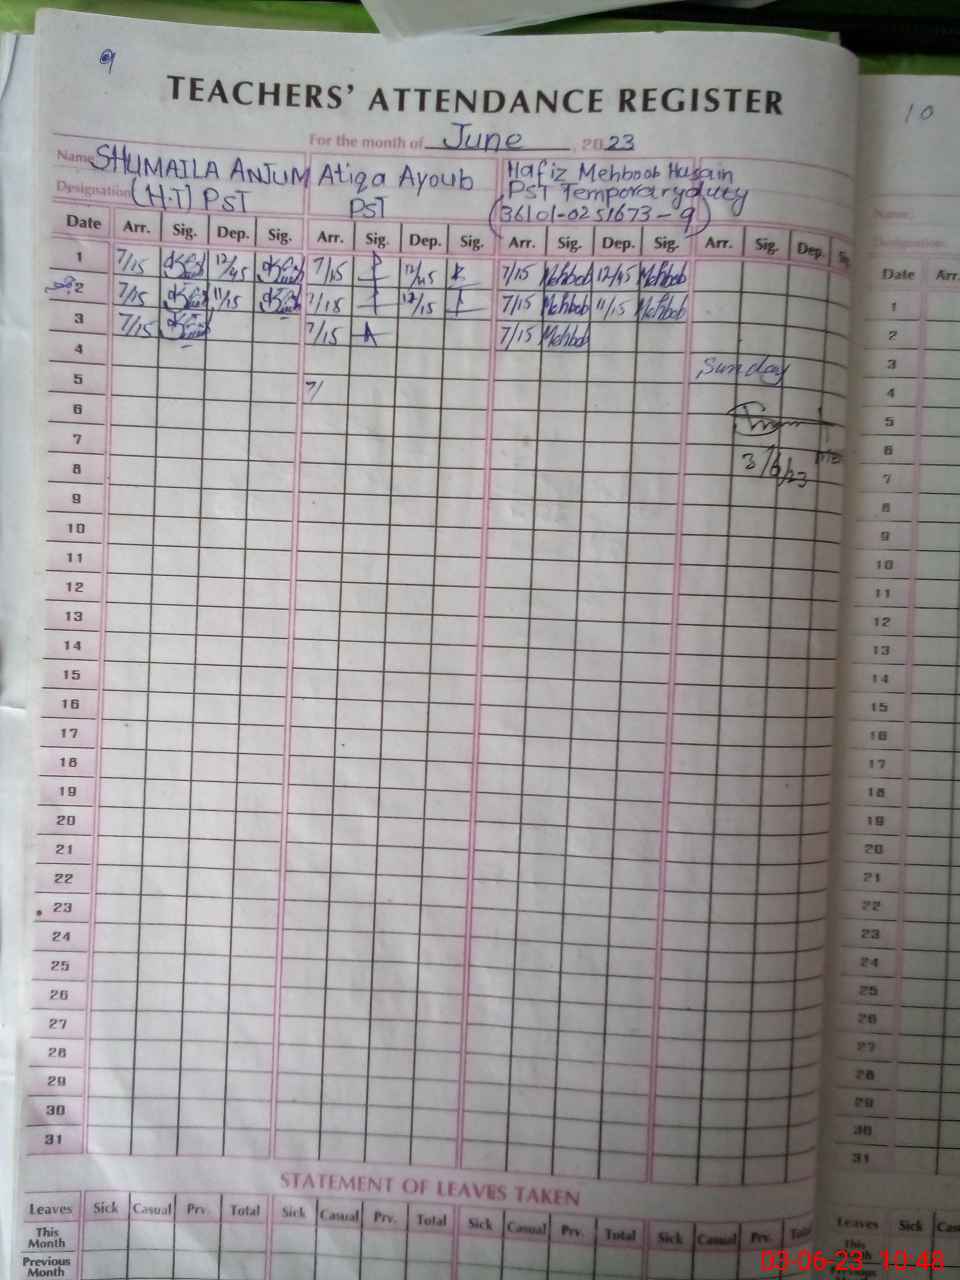 9
TEACHERS' ATTENDANCE REGISTER
For the month of June, 2023
Name SHUMAILA ANJUM Atiqa Ayoub Hafiz Mehboob Husain
Designation (H.T) PST PST PST Temporary duty
(36101-0251673-9)
Date Arr. Sig. Dep. Sig. Arr. Sig. Dep. Sig. Arr. Sig. Dep. Sig. Arr. Sig. Dep.
1 7/15 12/45 7/15 12/45 7/15 Mehbob 12/45 Mehbob
2 7/15 11/15 7/15 12/15 7/15 Mehbob 11/15 Mehbob
3 7/15 7/15 7/15 Mehbob
4 Sunday
5 7/
6
7
8 3/6/23
9
10
11
12
13
14
15
16
17
18
19
20
21
22
23
24
25
26
27
28
29
30
31
STATEMENT OF LEAVES TAKEN
Leaves Sick Casual Prv. Total Sick Casual Prv. Total Sick Casual Prv. Total Sick Casual Prv.
This Month
Previous Month
10
Name:
Date Arr.
1
2
3
4
5
6
7
8
9
10
11
12
13
14
15
16
17
18
19
20
21
22
23
24
25
26
27
28
29
30
31
Leaves Sick
03-06-23 10:48